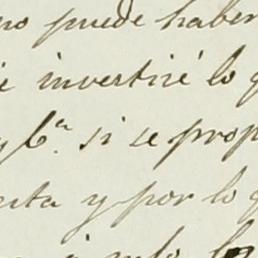 no puede haber
invertiré lo q
y bⁿ si se prop
nta y por lo q